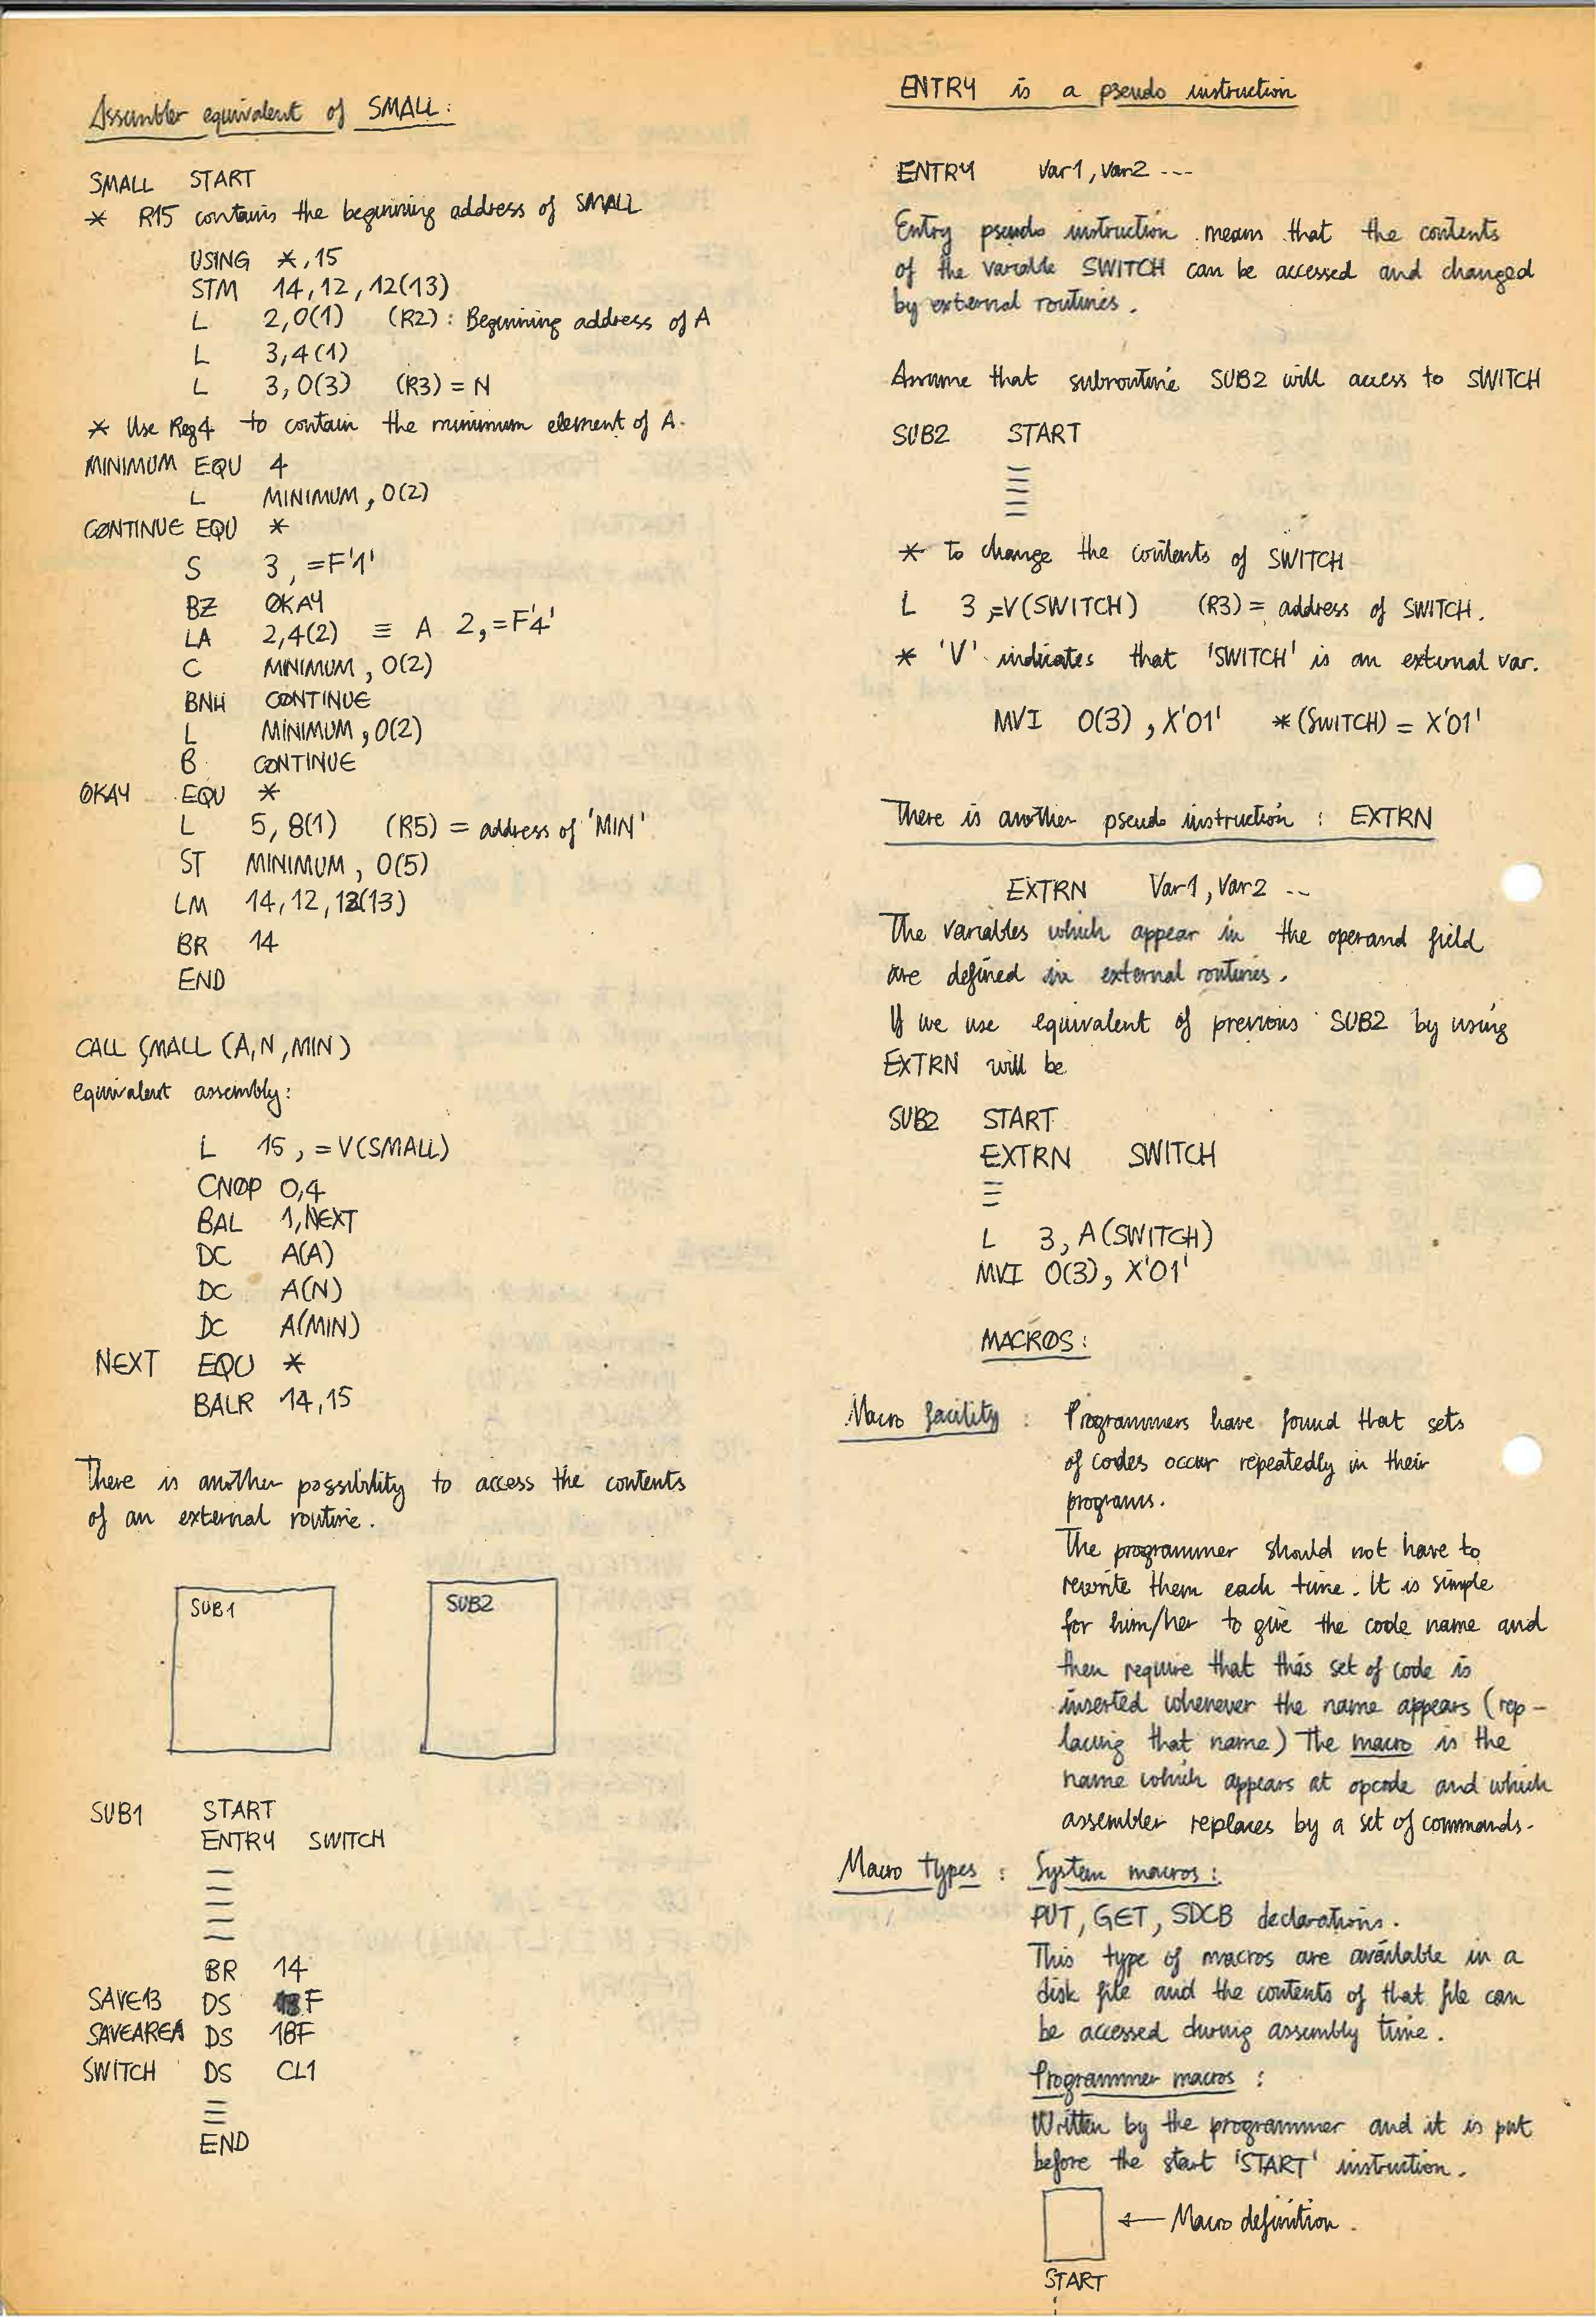 Assembler equivalent of SMALL:
SMALL START
* R15 contains the beginning address of SMALL
USING *,15
STM 14,12,12(13)
L 2,0(1) (R2): Beginning address of A
L 3,4(1)
L 3,0(3) (R3) = N
* Use Reg4 to contain the minimum element of A.
MINIMUM EQU 4
L MINIMUM, 0(2)
CONTINUE EQU *
S 3, =F'1'
BZ OKAY
LA 2,4(2) ≡ A 2,=F'4'
C MINIMUM, 0(2)
BNH CONTINUE
L MINIMUM, 0(2)
B CONTINUE
OKAY EQU *
L 5, 8(1) (R5) = address of 'MIN'
ST MINIMUM, 0(5)
LM 14,12,12(13)
BR 14
END
CALL SMALL (A,N,MIN)
equivalent assembly:
L 15, =V(SMALL)
CNOP 0,4
BAL 1,NEXT
DC A(A)
DC A(N)
DC A(MIN)
NEXT EQU *
BALR 14,15
There is another possibility to access the contents
of an external routine.
SUB1 SUB2
SUB1 START
ENTRY SWITCH
BR 14
SAVE13 DS F
SAVEAREA DS 18F
SWITCH DS CL1
END
ENTRY is a pseudo instruction
ENTRY Var1, Var2 ---
Entry pseudo instruction means that the contents
of the variable SWITCH can be accessed and changed
by external routines.
Assume that subroutine SUB2 will access to SWITCH
SUB2 START
* to change the contents of SWITCH
L 3,=V(SWITCH) (R3) = address of SWITCH.
* 'V' indicates that 'SWITCH' is an external var.
MVI 0(3), X'01' *(SWITCH) = X'01'
There is another pseudo instruction : EXTRN
EXTRN Var1, Var2 --
The variables which appear in the operand field
are defined in external routines.
If we use equivalent of previous SUB2 by using
EXTRN will be
SUB2 START
EXTRN SWITCH
L 3, A(SWITCH)
MVI 0(3), X'01'
MACROS:
Macro facility : Programmers have found that sets
of codes occur repeatedly in their
programs.
The programmer should not have to
rewrite them each time. It is simple
for him/her to give the code name and
then require that this set of code is
inserted whenever the name appears (rep-
lacing that name) The macro is the
name which appears at opcode and which
assembler replaces by a set of commands.
Macro types : System macros:
PUT, GET, SDCB declarations.
This type of macros are available in a
disk file and the contents of that file can
be accessed during assembly time.
Programmer macros :
Written by the programmer and it is put
before the start 'START' instruction.
← Macro definition.
START